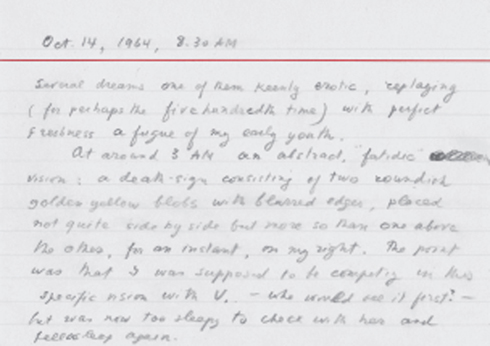 Oct. 14, 1964, 8.30 AM
Several dreams one of them keenly erotic, replaying
(for perhaps the five hundredth time) with perfect
freshness a fugue of my early youth.
At around 3 AM an abstract, "fatidic"
vision: a death-sign consisting of two roundish
golden yellow blobs with blurred edges, placed
not quite side by side but more so than one above
the other, for an instant, on my right. The point
was that I was supposed to be competing in this
specific vision with V. – who would see it first? –
but was now too sleepy to check with her and
fell asleep again.